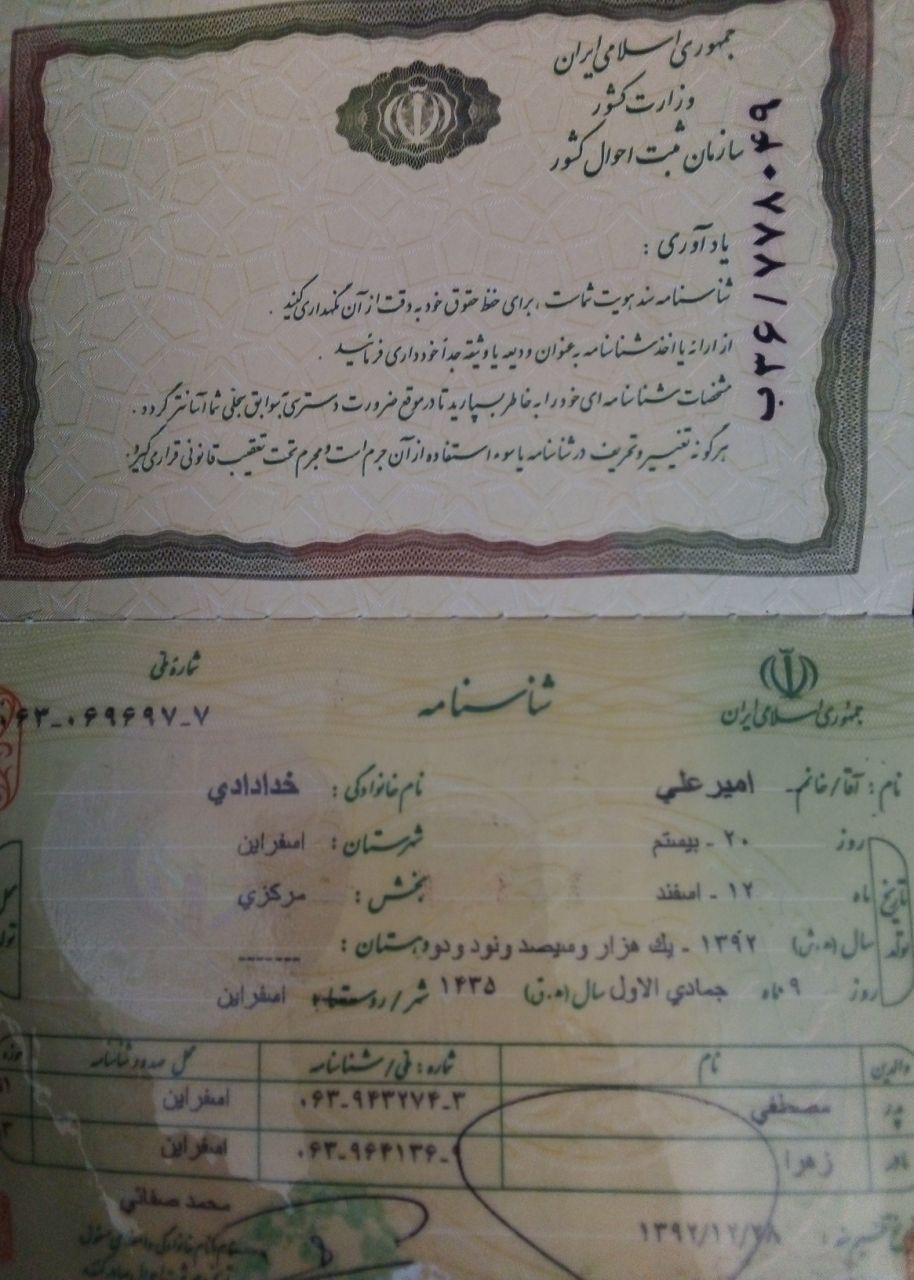 جمهوری اسلامی ایران
وزارت کشور
سازمان ثبت احوال کشور
ب۳۶/۷۷۸۰۴۹
یادآوری :
شناسنامه سند هویت شماست ، برای حفظ حقوق خود به دقت از آن نگهداری کنید .
از ارائه یا اخذ شناسنامه به عنوان ودیعه یا وثیقه جداً خودداری فرمائید .
مشخصات شناسنامه ای خود را به خاطر بسپارید تا در موقع ضرورت دسترسی بسوابق سجلی شما آسانتر گردد .
هرگونه تغییر و تحریف در شناسنامه یا سوء استفاده از آن جرم است و مجرم تحت تعقیب قانونی قرار می گیرد.
جمهوری اسلامی ایران
شناسنامه
شماره ملی
۰۶۳-۰۶۹۶۹۷-۷
نام : آقا/خانم امیر علي نام خانوادگی : خدادادي
تاریخ تولد
روز ۲۰ - بیستم شهرستان : اسفراین
ماه ۱۲ - اسفند بخش : مرکزي
سال (ه.ش) ۱۳۹۲ - یك هزار وسیصد ونود ودو دهستان : -------
روز ۹ ماه جمادي الاول سال (ه.ق) ۱۴۳۵ شهر/روستا : اسفراین
والدین نام شماره : ملی/شناسنامه محل صدور شناسنامه حوزه
پدر مصطفي ۰۶۳-۹۴۳۲۷۴-۳ اسفراین
مادر زهرا ۰۶۳-۹۶۴۱۳۶- اسفراین
تنظیم سند : ۱۳۹۲/۱۲/۲۸
محمد صفائي